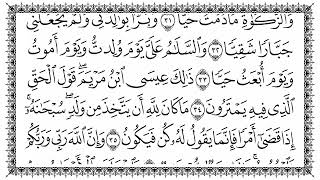 وَٱلزَّكَوٰةِ مَا دُمْتُ حَيًّا ٣١ وَبَرًّۢا بِوَٰلِدَتِى وَلَمْ يَجْعَلْنِى
جَبَّارًا شَقِيًّا ٣٢ وَٱلسَّلَٰمُ عَلَىَّ يَوْمَ وُلِدتُّ وَيَوْمَ أَمُوتُ
وَيَوْمَ أُبْعَثُ حَيًّا ٣٣ ذَٰلِكَ عِيسَى ٱبْنُ مَرْيَمَ ۚ قَوْلَ ٱلْحَقِّ
ٱلَّذِى فِيهِ يَمْتَرُونَ ٣٤ مَا كَانَ لِلَّهِ أَن يَتَّخِذَ مِن وَلَدٍ ۖ سُبْحَٰنَهُۥٓ ۚ
إِذَا قَضَىٰٓ أَمْرًا فَإِنَّمَا يَقُولُ لَهُۥ كُن فَيَكُونُ ٣٥ وَإِنَّ ٱللَّهَ رَبِّى وَرَبُّكُمْ